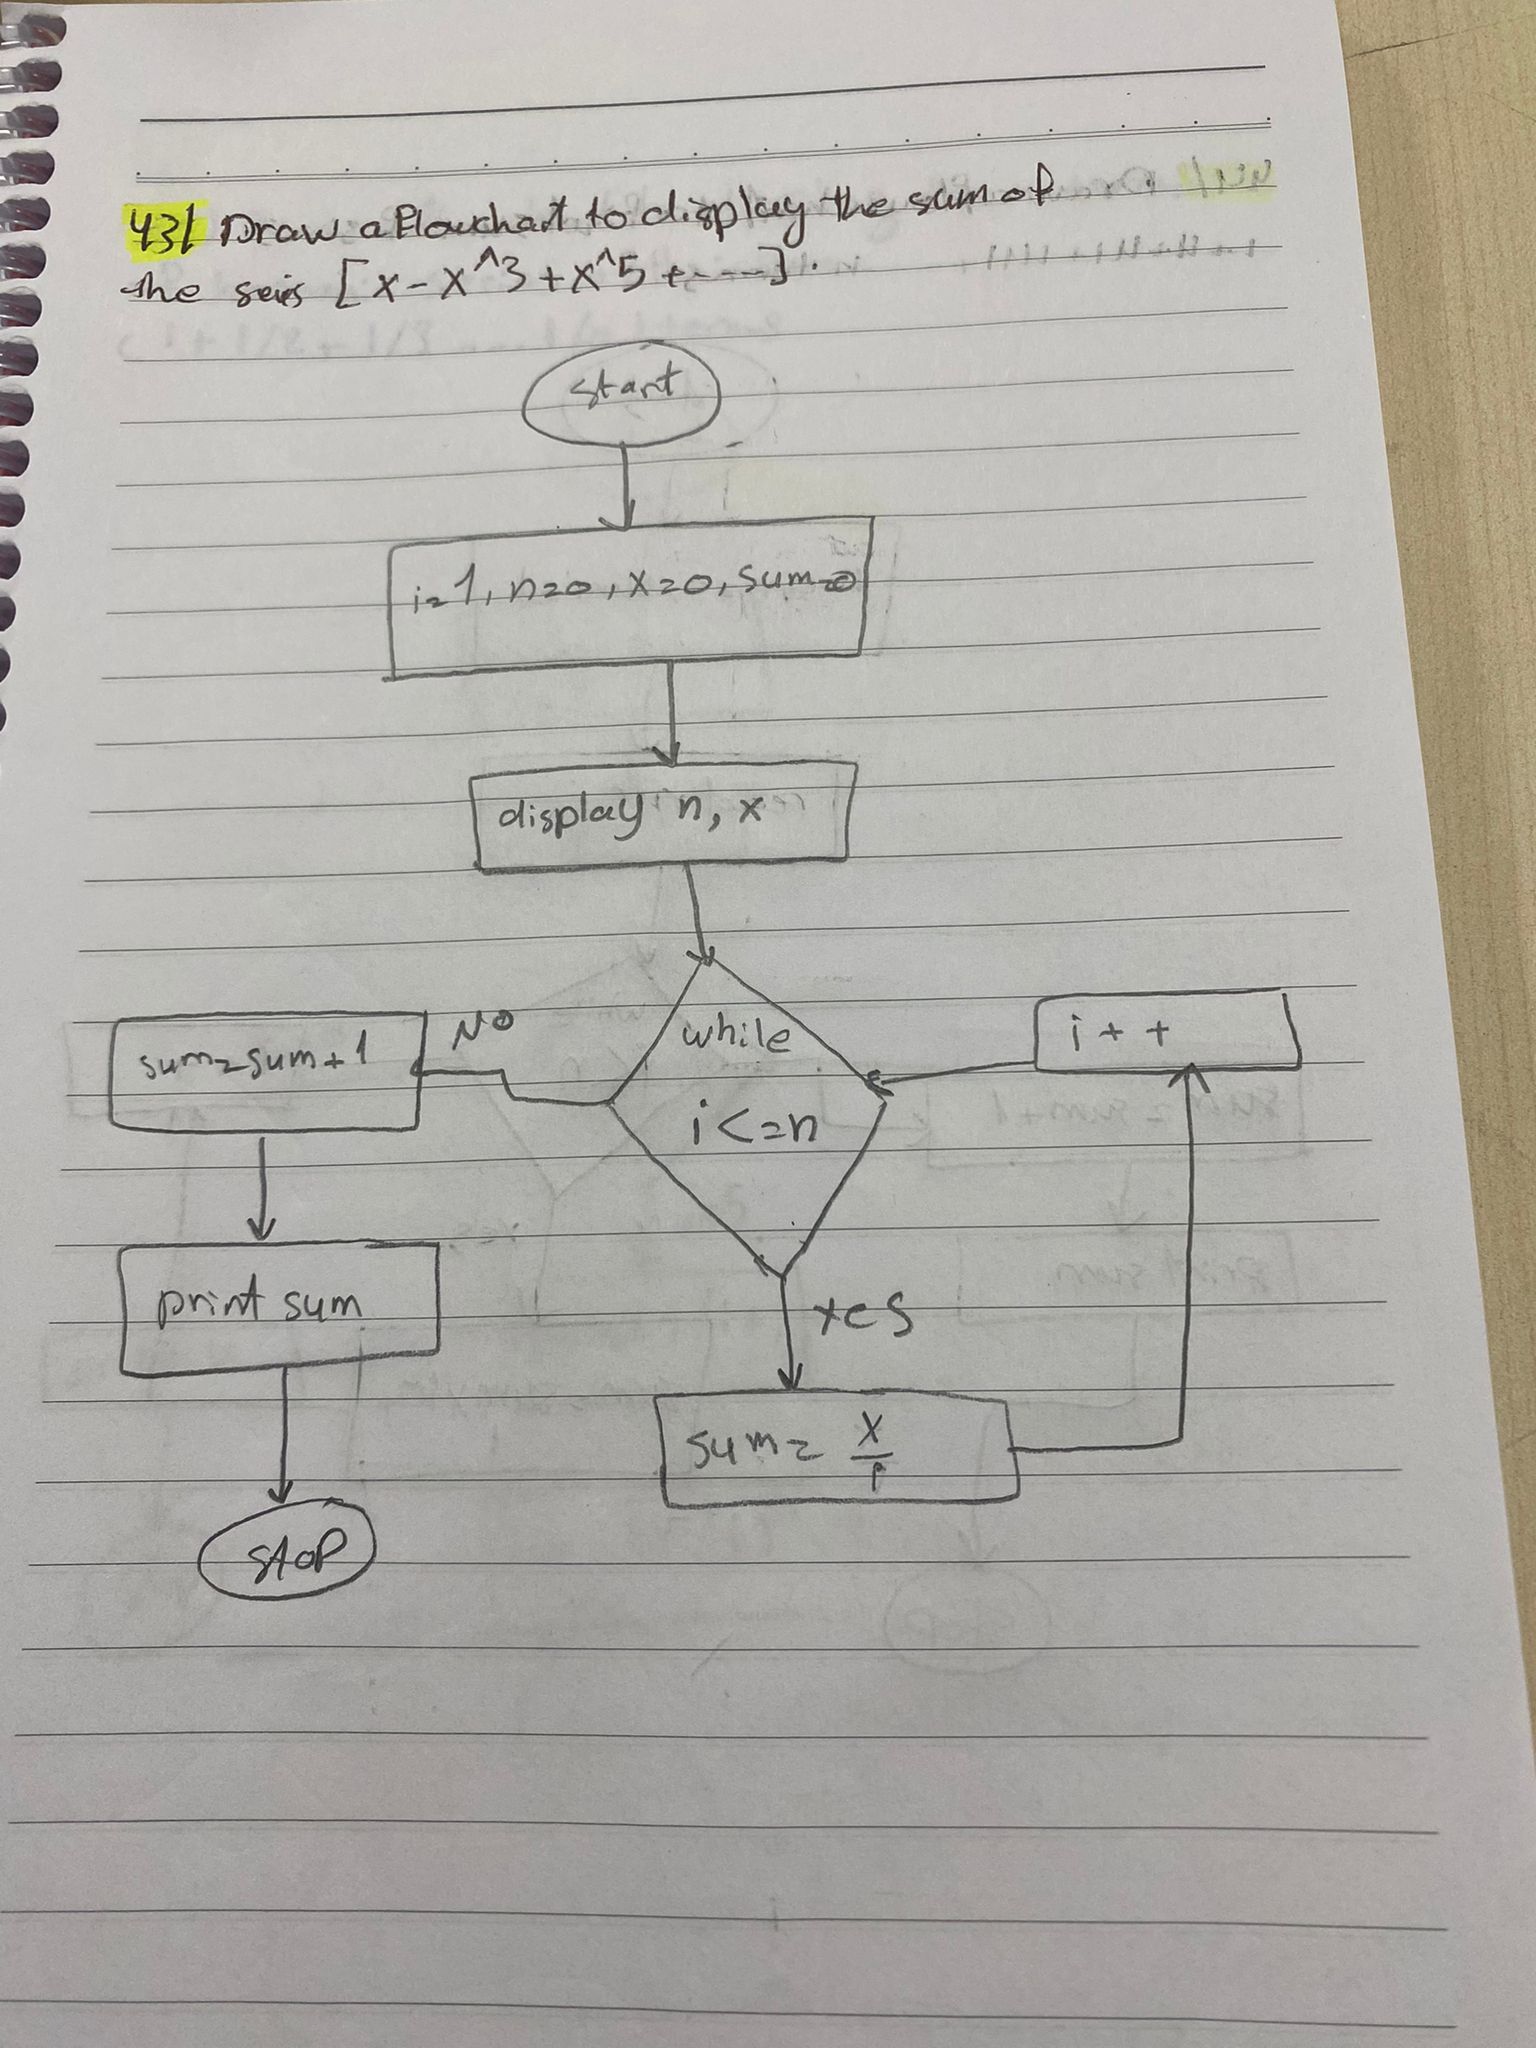 43/ Draw a Flowchart to display the sum of
the seies [x-x^3+x^5+----].
start
i=1, n=0, x=0, sum=0
display n, x
while
i<=n
NO
sum=sum+1
i++
print sum
yes
sum= x
stop